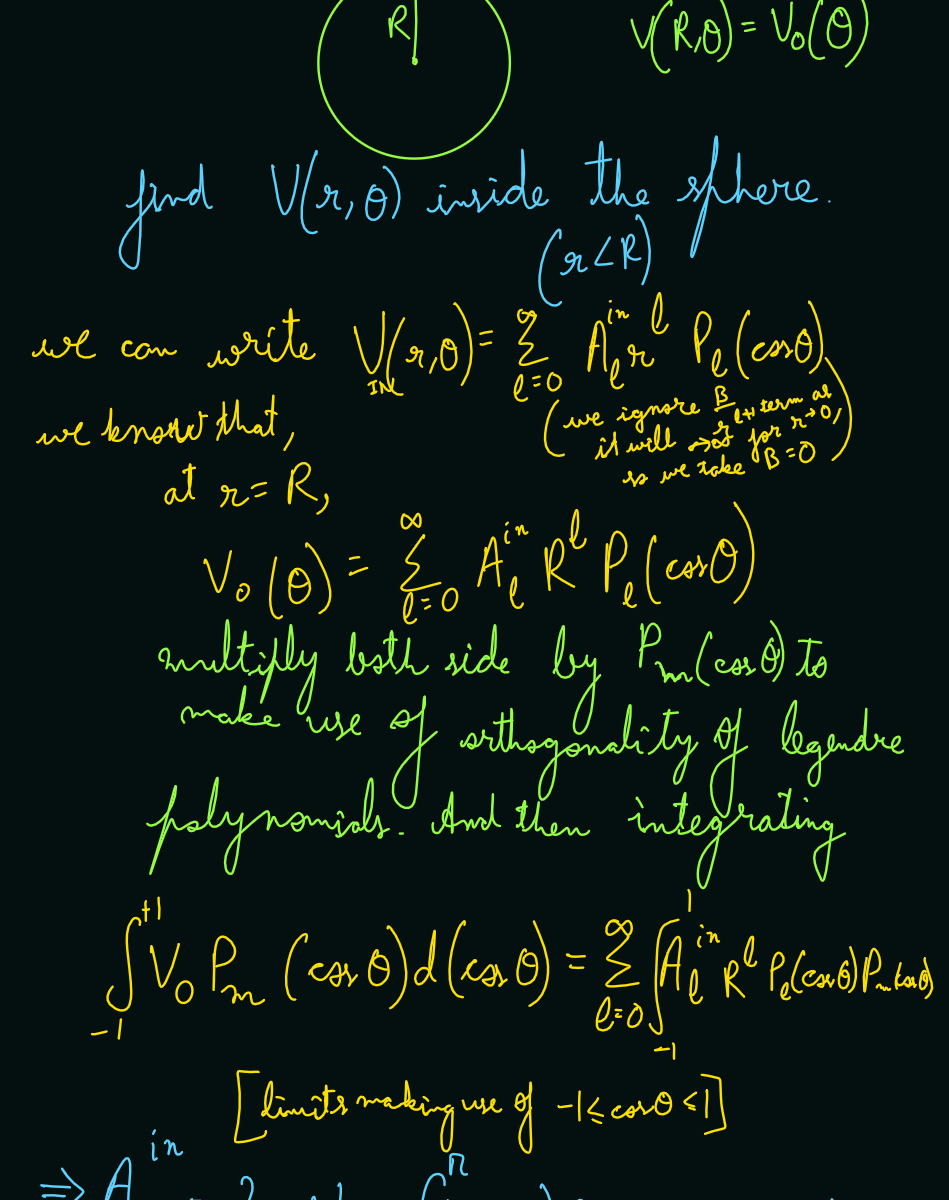 R
V(R,θ) = V₀(θ)
find V(r,θ) inside the sphere.
(r<R)
we can write V_IN(r,θ) = Σ_{l=0}^{∞} A_l^{in} r^l P_l(cosθ)
(we ignore B/r^{l+1} term as
it will → ∞ for r→0,
so we take B=0)
we know that,
at r = R,
V₀(θ) = Σ_{l=0}^{∞} A_l^{in} R^l P_l(cosθ)
multiply both side by P_m(cosθ) to
make use of orthogonality of legendre
polynomials. And then integrating
∫_{-1}^{+1} V₀ P_m (cosθ) d(cosθ) = Σ_{l=0}^{∞} ∫_{-1}^{1} A_l^{in} R^l P_l(cosθ) P_m(cosθ)
[limits making use of -1 ≤ cosθ ≤ 1]
⇒ A^{in}